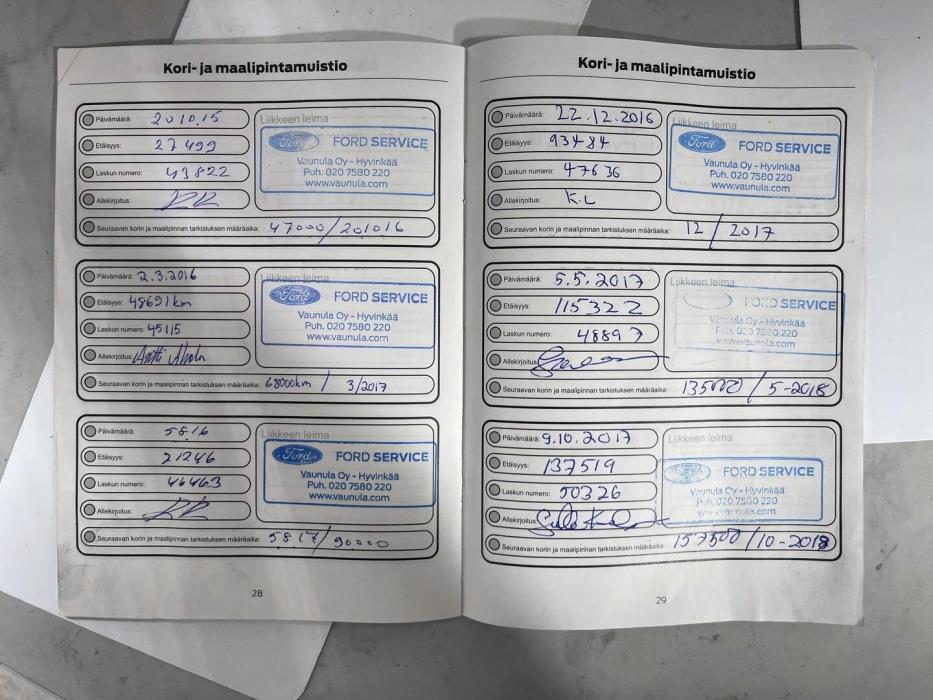 Kori- ja maalipintamuistio
Päivämäärä: 20 10.15
Etäisyys: 27 499
Laskun numero: 43822
Allekirjoitus:
Liikkeen leima
Ford FORD SERVICE
Vaunula Oy - Hyvinkää
Puh. 020 7580 220
www.vaunula.com
Seuraavan korin ja maalipinnan tarkistuksen määräaika: 47000/201016
Päivämäärä: 2.3.2016
Etäisyys: 48691km
Laskun numero: 45115
Allekirjoitus:
Liikkeen leima
Ford FORD SERVICE
Vaunula Oy - Hyvinkää
Puh. 020 7580 220
www.vaunula.com
Seuraavan korin ja maalipinnan tarkistuksen määräaika: 68000km / 3/2017
Päivämäärä: 5.8.16
Etäisyys: 71246
Laskun numero: 46463
Allekirjoitus:
Liikkeen leima
Ford FORD SERVICE
Vaunula Oy - Hyvinkää
Puh. 020 7580 220
www.vaunula.com
Seuraavan korin ja maalipinnan tarkistuksen määräaika: 5.8.17/90000
28
Kori- ja maalipintamuistio
Päivämäärä: 22.12.2016
Etäisyys: 93484
Laskun numero: 47636
Allekirjoitus: K.L
Liikkeen leima
Ford FORD SERVICE
Vaunula Oy - Hyvinkää
Puh. 020 7580 220
www.vaunula.com
Seuraavan korin ja maalipinnan tarkistuksen määräaika: 12 / 2017
Päivämäärä: 5.5.2017
Etäisyys: 115322
Laskun numero: 48897
Allekirjoitus:
Liikkeen leima
FORD SERVICE
Vaunula Oy - Hyvinkää
Puh. 020 7580 220
www.vaunula.com
Seuraavan korin ja maalipinnan tarkistuksen määräaika: 135000 / 5-2018
Päivämäärä: 9.10.2017
Etäisyys: 137519
Laskun numero: 50326
Allekirjoitus:
Liikkeen leima
Ford FORD SERVICE
Vaunula Oy - Hyvinkää
Puh. 020 7580 220
www.vaunula.com
Seuraavan korin ja maalipinnan tarkistuksen määräaika: 157500 /10-2018
29